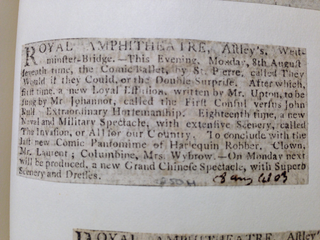 ROYAL AMPHITHEATRE, Astley's, West-
minster-Bridge.—This Evening, Monday, 8th, August
seventh time, the Comic Ballet, by St. Pierre, called They
Would if they Could, or the Double Surprise. After which,
first time, a new Loyal Effusion, written by Mr. Upton, to be
sung by Mr Johannot, called the First Consul versus John
Bull Extraordinary Horsemanship. Eighteenth time, a new
Naval and Military Spectacle, with extensive Scenery, called
The Invasion, or All for our Country. To conclude with the
last new Comic Pantomime of Harlequin Robber. Clown,
Mr. Laurent; Columbine, Mrs. Wybrow.—On Monday next
will be produced, a new Grand Chinese Spectacle, with Superb
Scenery and Dresses.
8 aug 1803
ROYAL AMPHITHEATRE